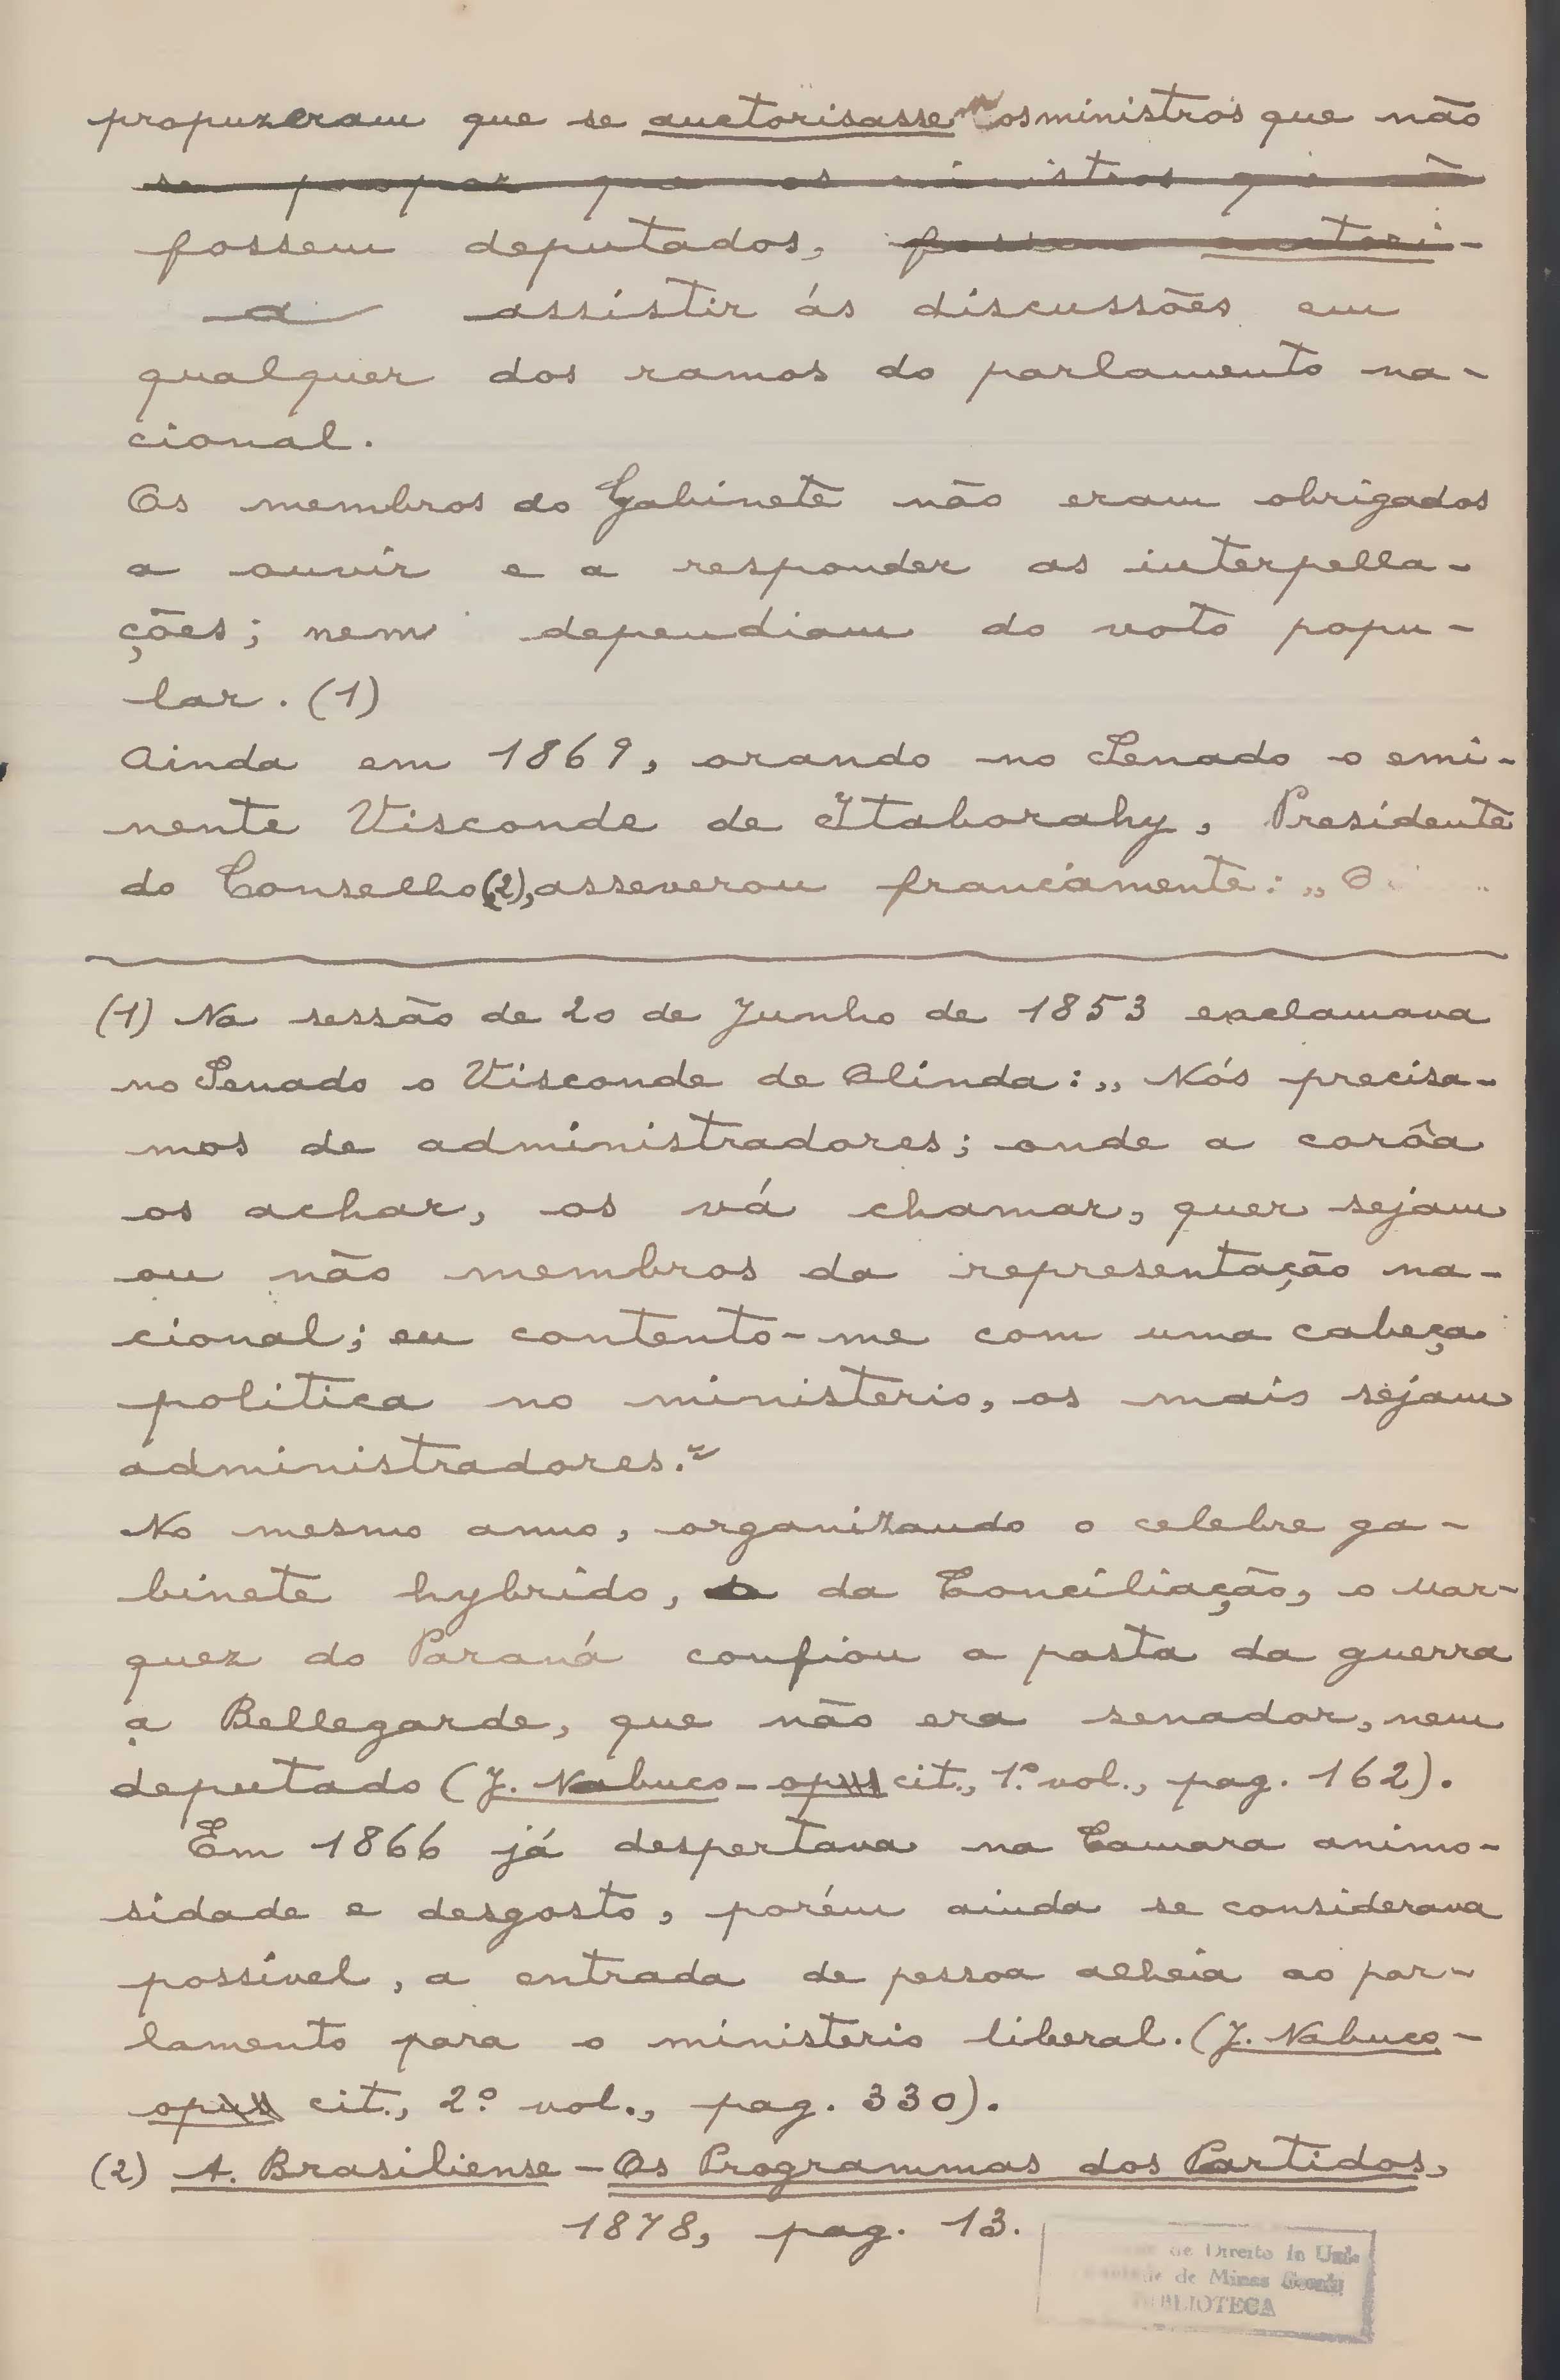 propuzeram que se auctorisassem os ministros que não
se propoz que os ministros que não
fossem deputados, fossem auctori-
a assistir ás discussões em
qualquer dos ramos do parlamento na-
cional.
Os membros do Gabinete não eram obrigados
a ouvir e a responder as interpella-
ções; nem dependiam do voto popu-
lar. (1)
Ainda em 1869, orando no Senado o emi-
nente Visconde de Itaborahy, Presidente
do Conselho (2), asseverou francamente: „ O
(1) Na sessão de 20 de Junho de 1853 exclamava
no Senado o Visconde de Olinda: „ Nós precisa-
mos de administradores; onde a corôa
os achar, os vá chamar, quer sejam
ou não membros da representação na-
cional; eu contento-me com uma cabeça
politica no ministerio, os mais sejam
administradores."
No mesmo anno, organizando o celebre ga-
binete hybrido, da Conciliação, o Mar-
quez do Paraná confiou a pasta da guerra
a Bellegarde, que não era senador, nem
deputado (J. Nabuco - opus cit., 1.º vol., pag. 162).
Em 1866 já despertava na Camara animo-
sidade e desgosto, porém ainda se considerava
possivel, a entrada de pessoa alheia ao par-
lamento para o ministerio liberal. (J. Nabuco -
opus cit., 2.º vol., pag. 330).
(2) A. Brasiliense - Os Programmas dos Partidos,
1878, pag. 13.
de Direito da
de Minas Geraes
BIBLIOTECA